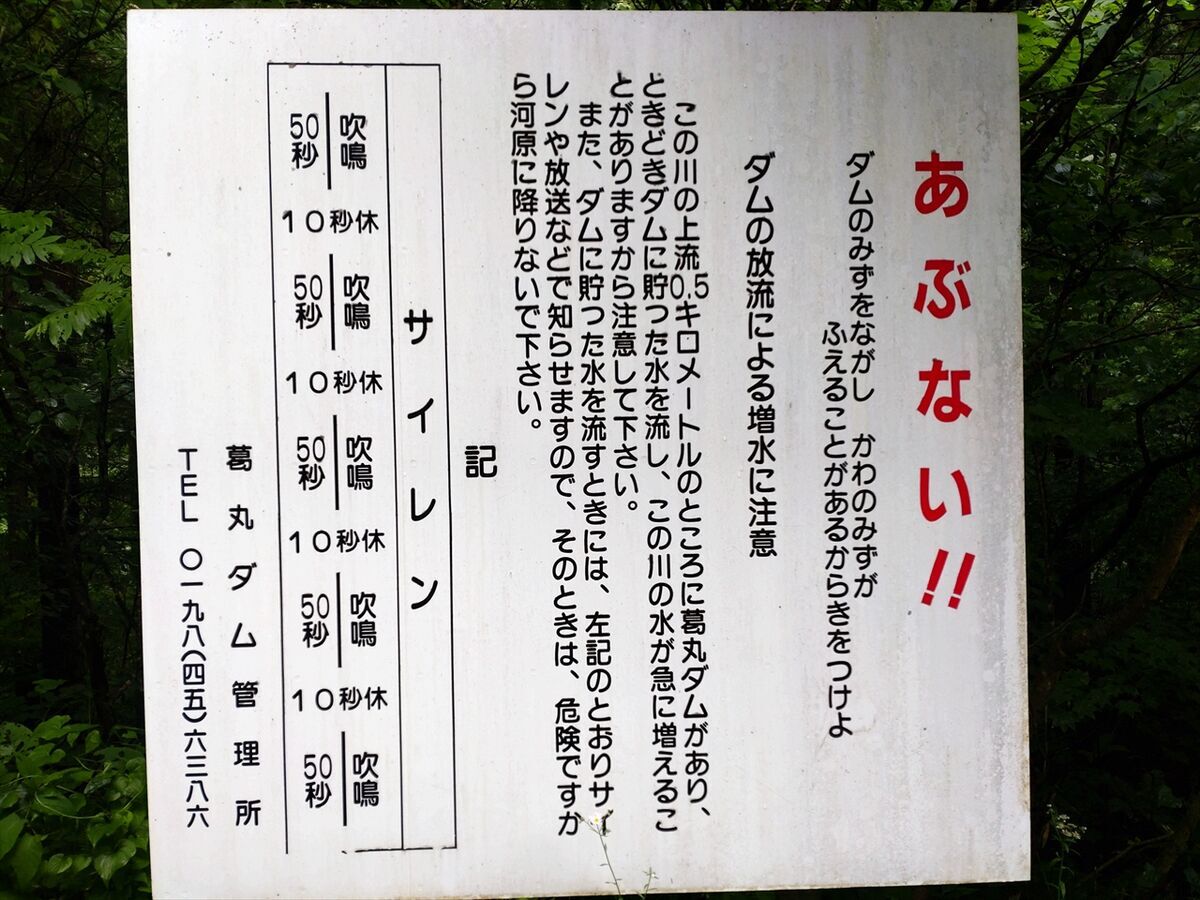 あぶない!!
ダムのみずをながし　かわのみずが
ふえることがあるからきをつけよ
ダムの放流による増水に注意
この川の上流0.5キロメートルのところに葛丸ダムがあり、
ときどきダムに貯った水を流し、この川の水が急に増えるこ
とがありますから注意して下さい。
また、ダムに貯った水を流すときには、左記のとおりサイ
レンや放送などで知らせますので、そのときは、危険ですか
ら河原に降りないで下さい。
記
サイレン
吹鳴 50秒
10秒休
吹鳴 50秒
10秒休
吹鳴 50秒
10秒休
吹鳴 50秒
10秒休
吹鳴 50秒
葛丸ダム管理所
TEL 〇一九八(四五)六三八六